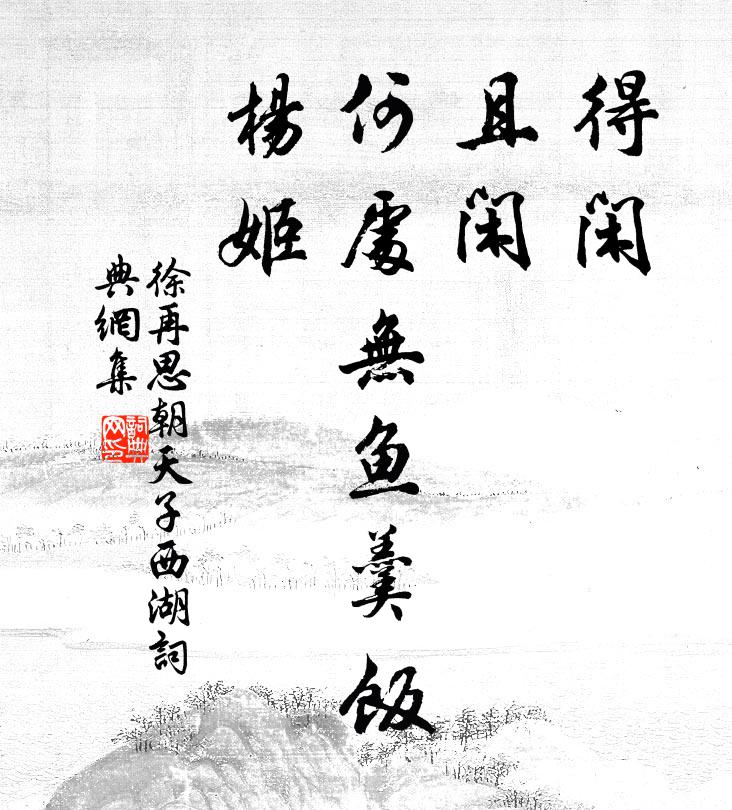 得閑
且閑
何處無魚羹飯
楊姬
徐再思朝天子西湖詞
典網集
詞典
网印